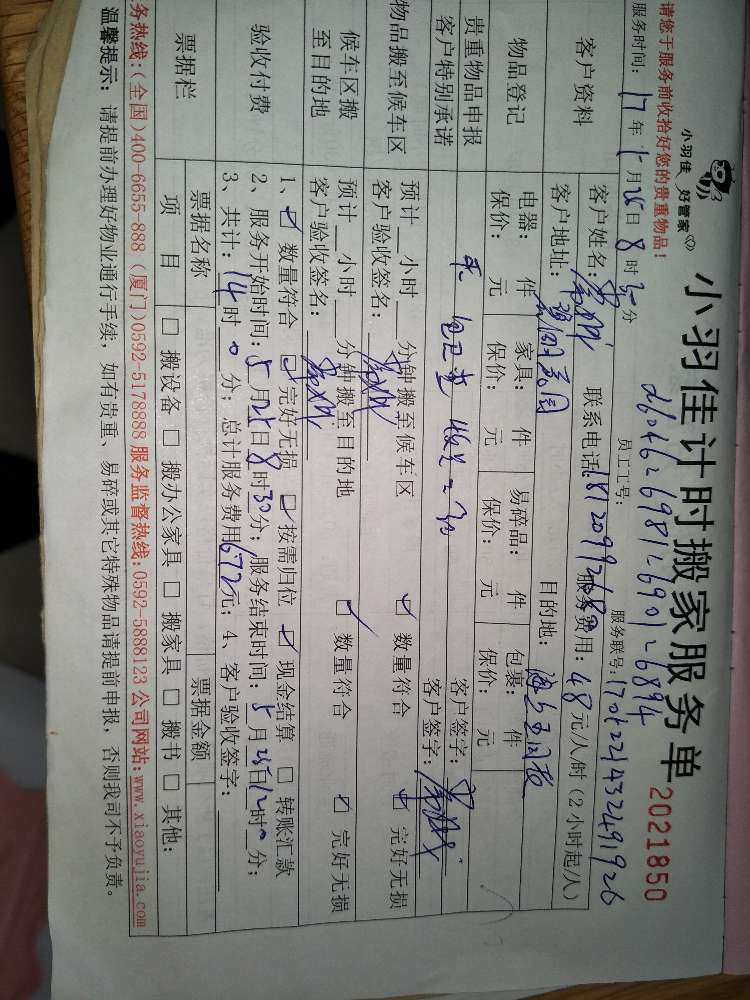 小羽佳 好管家
小羽佳计时搬家服务单 2021850
请您于服务前收拾好您的贵重物品！
员工工号：d6046 26981 26901 26894
服务时间：17年5月25日8时30分 服务联号：170522143249192б
客户资料 客户姓名： 联系电话： 服务费用：48元/人/时（2小时起/人）
客户地址： 目的地：
物品登记 电器： 件 家具： 件 易碎品： 件 包裹： 件
保价： 元 保价： 元 保价： 元 保价： 元
贵重物品申报 客户签字：
客户特别承诺 客户签字：
物品搬至候车区 预计__小时__分钟搬至候车区 ☑ 数量符合 ☑ 完好无损
客户验收签名：
候车区搬至目的地 预计__小时__分钟搬至目的地 ☑ 数量符合 ☑ 完好无损
客户验收签名：
验收付费 1、☑ 数量符合 ☑ 完好无损 ☑ 按需归位 ☑ 现金结算 □ 转账汇款
2、服务开始时间：5月25日8时30分；服务结束时间：5月25日12时0分；
3、共计：14时0分；总计服务费用672元；4、客户验收签字：
票据栏 票据名称 票据金额
项 目 □ 搬设备 □ 搬办公家具 □ 搬家具 □ 搬书 □ 其他：
务热线：(全国)400-6655-888 (厦门)0592-5178888 服务监督热线：0592-5888123 公司网站：www.xiaoyujia.com
温馨提示：请提前办理好物业通行手续，如有贵重、易碎或其它特殊物品请提前申报，否则我司不予负责。